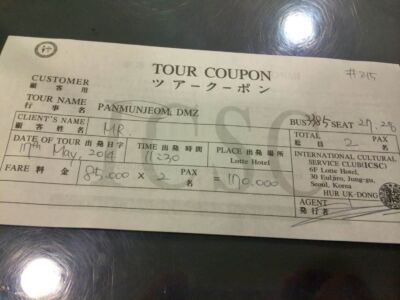 TOUR COUPON
#215
CUSTOMER
顧客用
ツアークーポン
TOUR NAME
行事名
PANMUNJEOM, DMZ
BUS 3985 SEAT 27.28
CLIENT'S NAME
顧客姓名
MR.
TOTAL
総員
2
PAX
名
DATE OF TOUR 出発日字
17th May, 2014
TIME 出発時間
11:30
PLACE 出発場所
Lotte Hotel
INTERNATIONAL CULTURAL
SERVICE CLUB(ICSC)
6F Lotte Hotel,
30 Euljiro, Jung-gu,
Seoul, Korea
HUR UK-DONG
FARE 料金
85.000 × 2 PAX 名 = 170.000
AGENT
発行者
ICSC